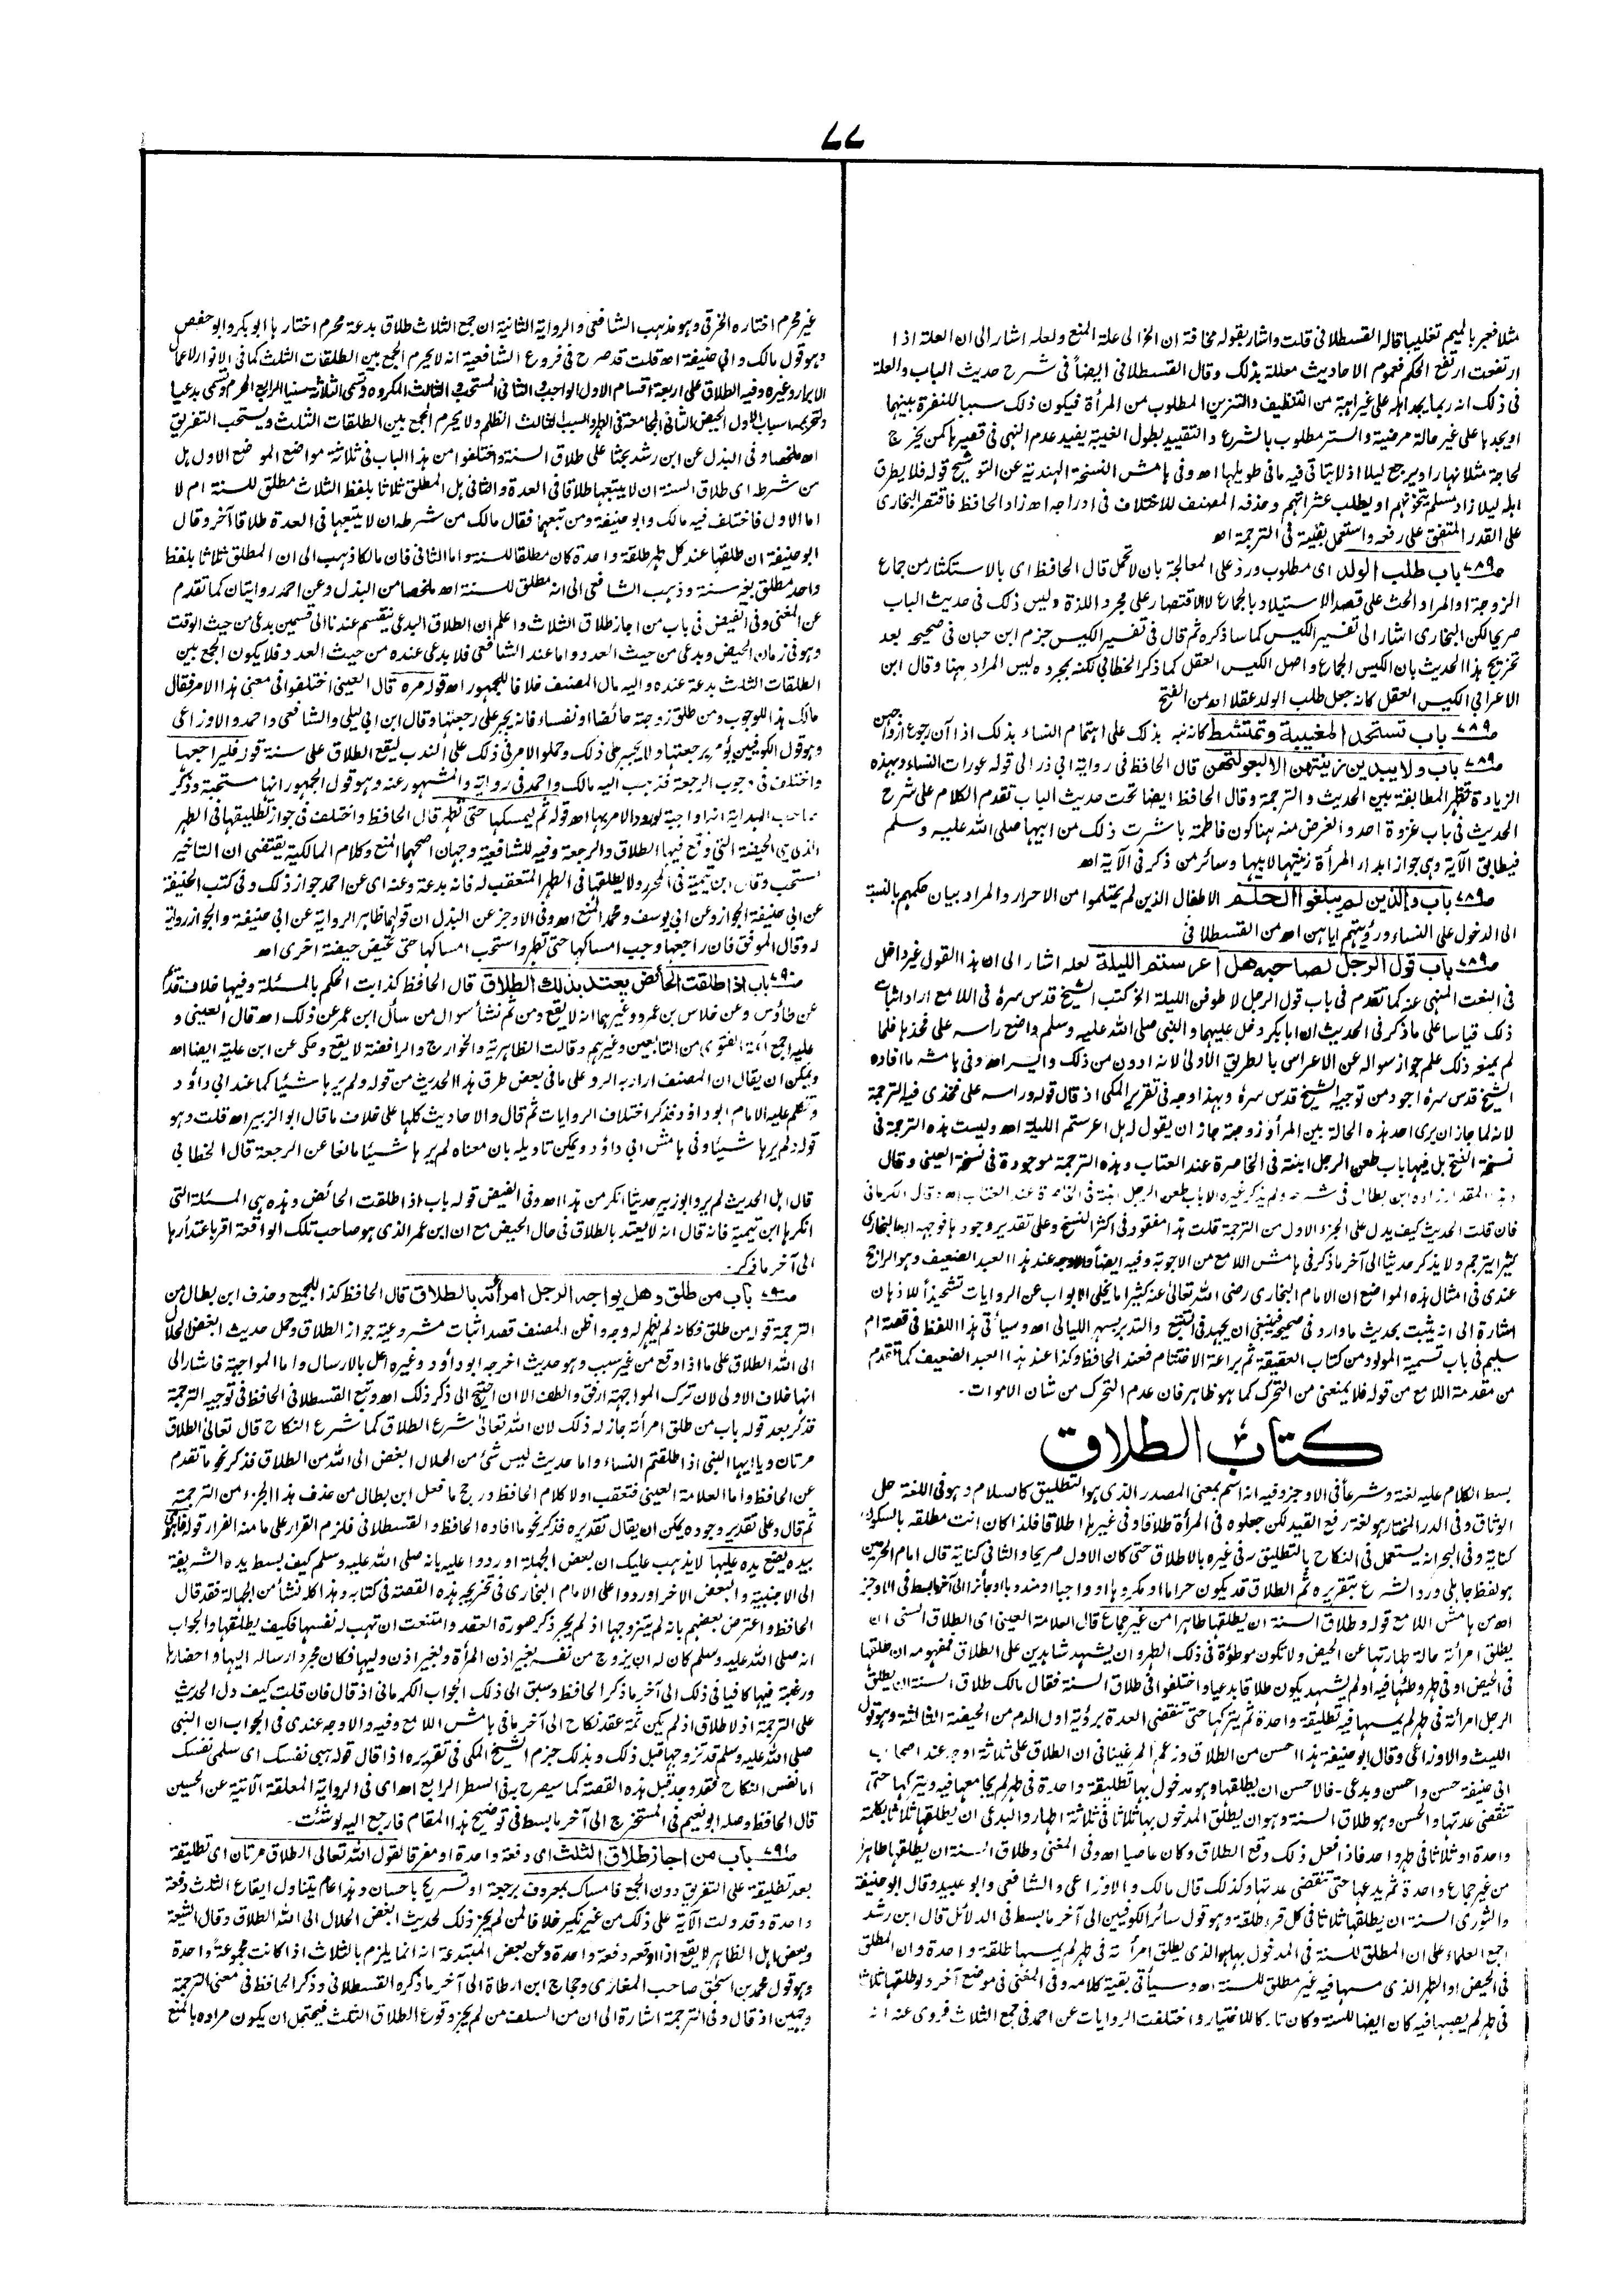 ٧٧
مثلا فعبر بالميم تغليبا قاله القسطلانى قلت واشار بقوله مخافة ان الخ الى علة المنع ولعله اشار الى ان العلة اذا
ارتفعت ارتفع الحكم فعموم الاحاديث معللة بذلك وقال القسطلانى ايضاً فى شرح حديث الباب والعلة
فى ذلك انه ربما يجد اهله على غير اهبة من التنظيف والتزين المطلوب من المرأة فيكون ذلك سببا للنفرة بينهما
او يجدها على غير حالة مرضية والستر مطلوب بالشرع والتقييد بطول الغيبة يفيد عدم النهى فى قصيرها كمن يخرج
لحاجة مثلا نهارا ويرجع ليلا اذ لا يتاتى فيه ما فى طويلها اه وفى هامش النسخة الهندية عن التوشيح قوله فلا يطرق
اهله ليلا زاد مسلم يتخونهم او يطلب عثراتهم وحذفه المصنف للاختلاف فى ادراجه اه زاد الحافظ فاقتصر البخارى
على القدر المتفق على رفعه واستعمل بقيته فى الترجمة اه
ص٧٨٩ باب طلب الولد اى مطلوب ورد على المعالجة بان لا تحمل قال الحافظ اى بالاستكثار من جماع
الزوجة او المراد الحث على قصد الاستيلاد بالجماع لا الاقتصار على مجرد اللذة وليس ذلك فى حديث الباب
صريحا لكن البخارى اشار الى تفسير الكيس كما ساذكره ثم قال فى تفسير الكيس جزم ابن حبان فى صحيحه بعد
تخريج هذا الحديث بان الكيس الجماع واصل الكيس العقل كما ذكر الخطابى لكنه بمجرده ليس المراد ههنا وقال ابن
الاعرابى الكيس العقل كانه جعل طلب الولد عقلا اه من الفتح
ص٧٨٩ باب تستحد المغيبة وتمتشط كانه نبه بذلك على اهتمام النساء بذلك اذا آن رجوع ازواجهن
ص٧٨٩ باب ولا يبدين زينتهن الا لبعولتهن قال الحافظ فى رواية ابى ذر الى قوله عورات النساء وبهذه
الزيادة تظهر المطابقة بين الحديث والترجمة وقال الحافظ ايضا تحت حديث الباب تقدم الكلام على شرح
الحديث فى باب غزوة احد والغرض منه هنا كون فاطمة باشرت ذلك من ابيها صلى الله عليه وسلم
فيطابق الآية وهى جواز ابداء المرأة زينتها لابيها وسائر من ذكر فى الآية اه
ص٧٨٩ باب والذين لم يبلغوا الحلم الاطفال الذين لم يحتلموا من الاحرار والمراد بيان حكمهم بالنسبة
الى الدخول على النساء ورؤيتهم اياهن اه من القسطلانى
ص٧٨٩ باب قول الرجل لصاحبه هل اعرستم الليلة لعله اشار الى ان هذا القول غير داخل
فى النعت المنهى عنه كما تقدم فى باب قول الرجل لاطوفن الليلة الخ كتب الشيخ قدس سره فى اللامع اراد اثبات
ذلك قياسا على ما ذكر فى الحديث ان ابابكر دخل عليهما والنبى صلى الله عليه وسلم واضع راسه على فخذها فلما
لم يمنعه ذلك علم جواز سواله عن الاعراس بالطريق الاولى لانه ادون من ذلك والى الله اه وفى هامشه ما افاده
الشيخ قدس سره اجود من توجيه الشيخ قدس سره وبهذا وجه فى تقرير المكى اذ قال قوله وراسه على فخذى فيه الترجمة
لانه لما جاز ان يرى احد هذه الحالة بين المرأ وزوجته جاز ان يقول له هل اعرستم الليلة اه وليست هذه الترجمة فى
نسخة الفتح بل فيها باب طعن الرجل ابنته فى الخاصرة عند العتاب وهذه الترجمة موجودة فى نسخة العينى وقال
وهذا المقدار زاده ابن بطال فى شرحه ولم يذكر غيره الا باب طعن الرجل ابنته فى الخاصرة عند العتاب اه وقال الكرمانى
فان قلت الحديث كيف يدل على الجزء الاول من الترجمة قلت هذا مفقود فى اكثر النسخ وعلى تقدير وجودها فوجهه انه البخارى
كثيرا يترجم ولا يذكر حديثا الى آخر ما ذكر فى هامش اللامع من الاجوبة وفيه ايضاً والاوجه عند هذا العبد الضعيف وهو الراجح
عندى فى امثال هذه المواضع ان الامام البخارى رضى الله تعالى عنه كثيرا ما يخلى الابواب عن الروايات تشحيذاً للاذهان
اشارة الى انه يثبت بحديث ما وارد فى صحيحه فينبغى ان يجهد فى التتبع والتدبر بسهر الليالى اه وسيأتى هذا اللفظ فى قصة ام
سليم فى باب تسمية المولود من كتاب العقيقة ثم براعة الاختتام فعند الحافظ وكذا عند هذا العبد الضعيف كما تقدم
من مقدمة اللامع من قوله فلا يمنعنى من التحرك كما هو ظاهر فان عدم التحرك من شان الاموات ۔
كتاب الطلاق
بسط الكلام عليه لغة وشرعاً فى الاوجز وفيه انه اسم بمعنى المصدر الذى هو التطليق كالسلام وهو فى اللغة حل
الوثاق وفى الدر المختار هو لغة رفع القيد لكن جعلوه فى المرأة طلاقا وفى غيرها اطلاقا فلذا كان انت مطلقة بالسكون
كناية وفى البحر انه يستعمل فى النكاح بالتطليق وفى غيره بالاطلاق حتى كان الاول صريحا والثانى كناية قال امام الحرمين
هو لفظ جاهلى ورد الشرع بتقريره ثم الطلاق قد يكون حراما او مكروها او واجبا او مندوبا او جائزا الى آخر ما بسط فى الاوجز
اه من هامش اللامع قوله وطلاق السنة ان يطلقها طاهرا من غير جماع قال العلامة العينى اى الطلاق السنى ان
يطلق امرأته حالة طهارتها عن الحيض ولا تكون موطؤة فى ذلك الطهر وان يشهد شاهدين على الطلاق فمفهومه ان طلقها
فى الحيض او فى طهر وطئها فيه او لم يشهد يكون طلاقا بدعيا واختلفوا فى طلاق السنة فقال مالك طلاق السنة ان يطلق
الرجل امرأته فى طهر لم يمسها فيه تطليقة واحدة ثم يتركها حتى تنقضى العدة برؤية اول الدم من الحيضة الثالثة وهو قول
الليث والاوزاعى وقال ابو حنيفة هذا احسن من الطلاق وزعم المرغينانى ان الطلاق على ثلاثة اوجه عند اصحاب
ابى حنيفة حسن واحسن وبدعى ۔ فالاحسن ان يطلقها وهو مدخول بها تطليقة واحدة فى طهر لم يجامعها فيه ويتركها حتى
تنقضى عدتها والحسن وهو طلاق السنة وهو ان يطلق المدخول بها ثلاثا فى ثلاثة اطهار والبدعى ان يطلقها ثلاثا بكلمة
واحدة او ثلاثا فى طهر واحد فاذا فعل ذلك وقع الطلاق وكان عاصيا اه وفى المغنى وطلاق السنة ان يطلقها طاهرا
من غير جماع واحدة ثم يدعها حتى تنقضى عدتها وكذلك قال مالك والاوزاعى والشافعى وابو عبيد وقال ابو حنيفة
والثورى السنة ان يطلقها ثلاثا فى كل قرء طلقة وهو قول سائر الكوفيين الى آخر ما بسط فى الدلائل قال ابن رشد
اجمع العلماء على ان المطلق للسنة فى المدخول بها هو الذى يطلق امرأته فى طهر لم يمسها طلقة واحدة وان المطلق
فى الحيض او الطهر الذى مسها فيه غير مطلق للسنة اه وسيأتى بقية كلامه وفى المغنى فى موضع آخر ولو طلقها ثلاثا
فى طهر لم يصبها فيه كان ايضا للسنة وكان تاركا للاختيار واختلفت الروايات عن احمد فى جمع الثلاث فروى عنه انه
غير محرم اختاره الخرقى وهو مذهب الشافعى والرواية الثانية ان جمع الثلاث طلاق بدعة محرم اختارها ابو بكر وابو حفص
وهو قول مالك وابى حنيفة اه قلت قد صرح فى فروع الشافعية انه لا يحرم الجمع بين الطلقات الثلث كما فى الانوار لاعمال
الابرار وغيره وفيه الطلاق على اربعة اقسام الاول الواجب الثانى المستحب الثالث المكروه وتسمى الثلاثة سنيا الرابع المحرم وتسمى بدعيا
ولتحريمه اسباب الاول الحيض الثانى المجامعة فى الطهر والسبب الثالث الظلم ولا يحرم الجمع بين الطلقات الثلث ويستحب التفريق
اه ملخصا وفى البذل عن ابن رشد بحثا على طلاق السنة واختلفوا من هذا الباب فى ثلاثة مواضع الموضع الاول هل
من شرطه اى طلاق السنة ان لا يتبعها طلاقا فى العدة والثانى هل المطلق ثلاثا بلفظ الثلاث مطلق للسنة ام لا
اما الاول فاختلف فيه مالك وابو حنيفة ومن تبعهما فقال مالك من شرطه ان لا يتبعها فى العدة طلاقا آخر وقال
ابو حنيفة ان طلقها عند كل طهر طلقة واحدة كان مطلقا للسنة واما الثانى فان مالكا ذهب الى ان المطلق ثلاثا بلفظ
واحد مطلق بغير سنة وذهب الشافعى الى انه مطلق للسنة اه ملخصا من البذل وعن احمد روايتان كما تقدم
عن المغنى وفى الفيض فى باب من اجاز طلاق الثلاث واعلم ان الطلاق البدعى ينقسم عندنا الى قسمين بدعى من حيث الوقت
وهو فى زمان الحيض وبدعى من حيث العدد واما عند الشافعى فلا بدعى عنده من حيث العدد فلا يكون الجمع بين
الطلقات الثلث بدعة عنده واليه مال المصنف خلافا للجمهور اه قوله مره قال العينى اختلفوا فى معنى هذا الامر فقال
مالك هذا للوجوب ومن طلق زوجته حائضا او نفساء فانه يجبر على رجعتها وقال ابن ابى ليلى والشافعى واحمد والاوزاعى
وهو قول الكوفيين يؤمر برجعتها ولا يجبر على ذلك وحملوا الامر فى ذلك على الندب ليقع الطلاق على سنة قوله فليراجعها
واختلف فى وجوب الرجعة فذهب اليه مالك واحمد فى رواية والمشهور عنه وهو قول الجمهور انها مستحبة وذكر
صاحب الهداية انها واجبة لورود الامر بها اه قوله ثم ليمسكها حتى تطهر قال الحافظ واختلف فى جواز تطليقها فى الطهر
الذى يلى الحيضة التى وقع فيها الطلاق والرجعة وفيه للشافعية وجهان اصحهما المنع وكلام المالكية يقتضى ان التاخير
مستحب وقال ابن تيمية فى المحرر ولا يطلقها فى الطهر المتعقب له فانه بدعة وعنه اى عن احمد جواز ذلك وفى كتب الحنفية
عن ابى حنيفة الجواز وعن ابى يوسف ومحمد المنع اه وفى الاوجز عن البذل ان قولهما ظاهر الرواية عن ابى حنيفة والجواز رواية
له وقال الموفق فان راجعها وجب امساكها حتى تطهر واستحب امساكها حتى تحيض حيضة اخرى اه
ص٧٩٠ باب اذا طلقت الحائض يعتد بذلك الطلاق قال الحافظ كذا بت الحكم بالمسئلة وفيها خلاف قديم
عن طاؤس وعن خلاس بن عمرو وغيرهما انه لا يقع ومن ثم نشأ سوال من سأل ابن عمر عن ذلك اه قال العينى و
عليه اجمع ائمة الفتوى من التابعين وغيرهم وقالت الظاهرية والخوارج والرافضة لا يقع وحكى عن ابن علية ايضا اه
ويمكن ان يقال ان المصنف اراد به الرد على ما فى بعض طرق هذا الحديث من قوله ولم يرها شيئا كما عند ابى داؤد
وتكلم عليه الامام ابوداؤد فذكر اختلاف الروايات ثم قال والاحاديث كلها على خلاف ما قال ابو الزبير اه قلت وهو
قوله ولم يرها شيئا وفى هامش ابى داؤد ويمكن تاويله بان معناه لم يرها شيئا مانعا عن الرجعة قال الخطابى
قال اهل الحديث لم يرو ابو زبير حديثا انكر من هذا اه وفى الفيض قوله باب اذا طلقت الحائض وهذه هى المسئلة التى
انكرها ابن تيمية فانه قال انه لا يعتد بالطلاق فى حال الحيض مع ان ابن عمر الذى هو صاحب تلك الواقعة اقر باعتدادها
الى آخر ما ذكر ۔
ص٧٩٠ باب من طلق وهل يواجه الرجل امرأته بالطلاق قال الحافظ كذا للجميع وحذف ابن بطال من
الترجمة قوله من طلق فكانه لم يظهر له وجه واظن المصنف قصد اثبات مشروعية جواز الطلاق وحمل حديث ابغض الحلال
الى الله الطلاق على ما اذا وقع من غير سبب وهو حديث اخرجه ابوداؤد وغيره اعل بالارسال واما المواجهة فاشار الى
انها خلاف الاولى لان ترك المواجهة ارفق والطف الا ان احتيج الى ذكر ذلك اه وتبع القسطلانى الحافظ فى توجيه الترجمة
فذكر بعد قوله باب من طلق امرأته جاز له ذلك لان الله تعالى شرع الطلاق كما شرع النكاح قال تعالى الطلاق
مرتان ويا ايها النبى اذا طلقتم النساء واما حديث ليس شئ من الحلال ابغض الى الله من الطلاق فذكر نحو ما تقدم
عن الحافظ واما العلامة العينى فتعقب اولا كلام الحافظ ورجح ما فعل ابن بطال من حذف هذا الجزء من الترجمة
ثم قال وعلى تقدير وجوده يمكن ان يقال تقديره فذكر نحو ما افاده الحافظ والقسطلانى فلزم القرار على ما منه الفرار قوله فاهوى
بيده يضع يده عليها لا يذهب عليك ان بعض الجهلة اوردوا عليه بانه صلى الله عليه وسلم كيف بسط يده الشريفة
الى الاجنبية والبعض الاخر اوردوا على الامام البخارى فى تخريجه هذه القصة فى كتابه وهذا كله نشأ من الجهالة فقد قال
الحافظ واعترض بعضهم بانه لم يتزوجها اذ لم يجر ذكر صورة العقد وامتنعت ان تهب له نفسها فكيف يطلقها والجواب
انه صلى الله عليه وسلم كان له ان يزوج من نفسه بغير اذن المرأة وبغير اذن وليها فكان مجرد ارساله اليها واحضارها
ورغبته فيها كافيا فى ذلك الى آخر ما ذكر الحافظ وسبق الى ذلك الجواب الكرمانى اذ قال فان قلت كيف دل الحديث
على الترجمة اذ لا طلاق اذ لم يكن ثمة عقد نكاح الى آخر ما فى هامش اللامع وفيه والاوجه عندى فى الجواب ان النبى
صلى الله عليه وسلم قد تزوجها قبل ذلك وبذلك جزم الشيخ المكى فى تقريره اذا قال قوله هبى نفسك اى سلمى نفسك
اما نفس النكاح فقد وجد قبل هذه القصة كما سيصرح به فى السطر الرابع اه اى فى الرواية المعلقة الآتية عن الحسين
قال الحافظ وصله ابو نعيم فى المستخرج الى آخر ما بسط فى توضيح هذا المقام فارجع اليه لو شئت ۔
ص٧٩١ باب من اجاز طلاق الثلث اى دفعة واحدة او مفرقا لقول الله تعالى الطلاق مرتان اى تطليقة
بعد تطليقة على التفريق دون الجمع فامساك بمعروف برجعة او تسريح باحسان وهذا عام يتناول ايقاع الثلث دفعة
واحدة وقد دلت الآية على ذلك من غير نكير خلافا لمن لم يجز ذلك لحديث ابغض الحلال الى الله الطلاق وقال الشيعة
وبعض اهل الظاهر لا يقع اذا اوقعه دفعة واحدة وعن بعض المبتدعة انه انما يلزم بالثلاث اذا كانت مجموعة واحدة
وهو قول محمد بن اسحق صاحب المغازى وحجاج ابن ارطاة الى آخر ما ذكره القسطلانى وذكر الحافظ فى معنى الترجمة
وجهين اذ قال وفى الترجمة اشارة الى ان من السلف من لم يجز وقوع الطلاق الثلث فيحتمل ان يكون مراده بالمنع